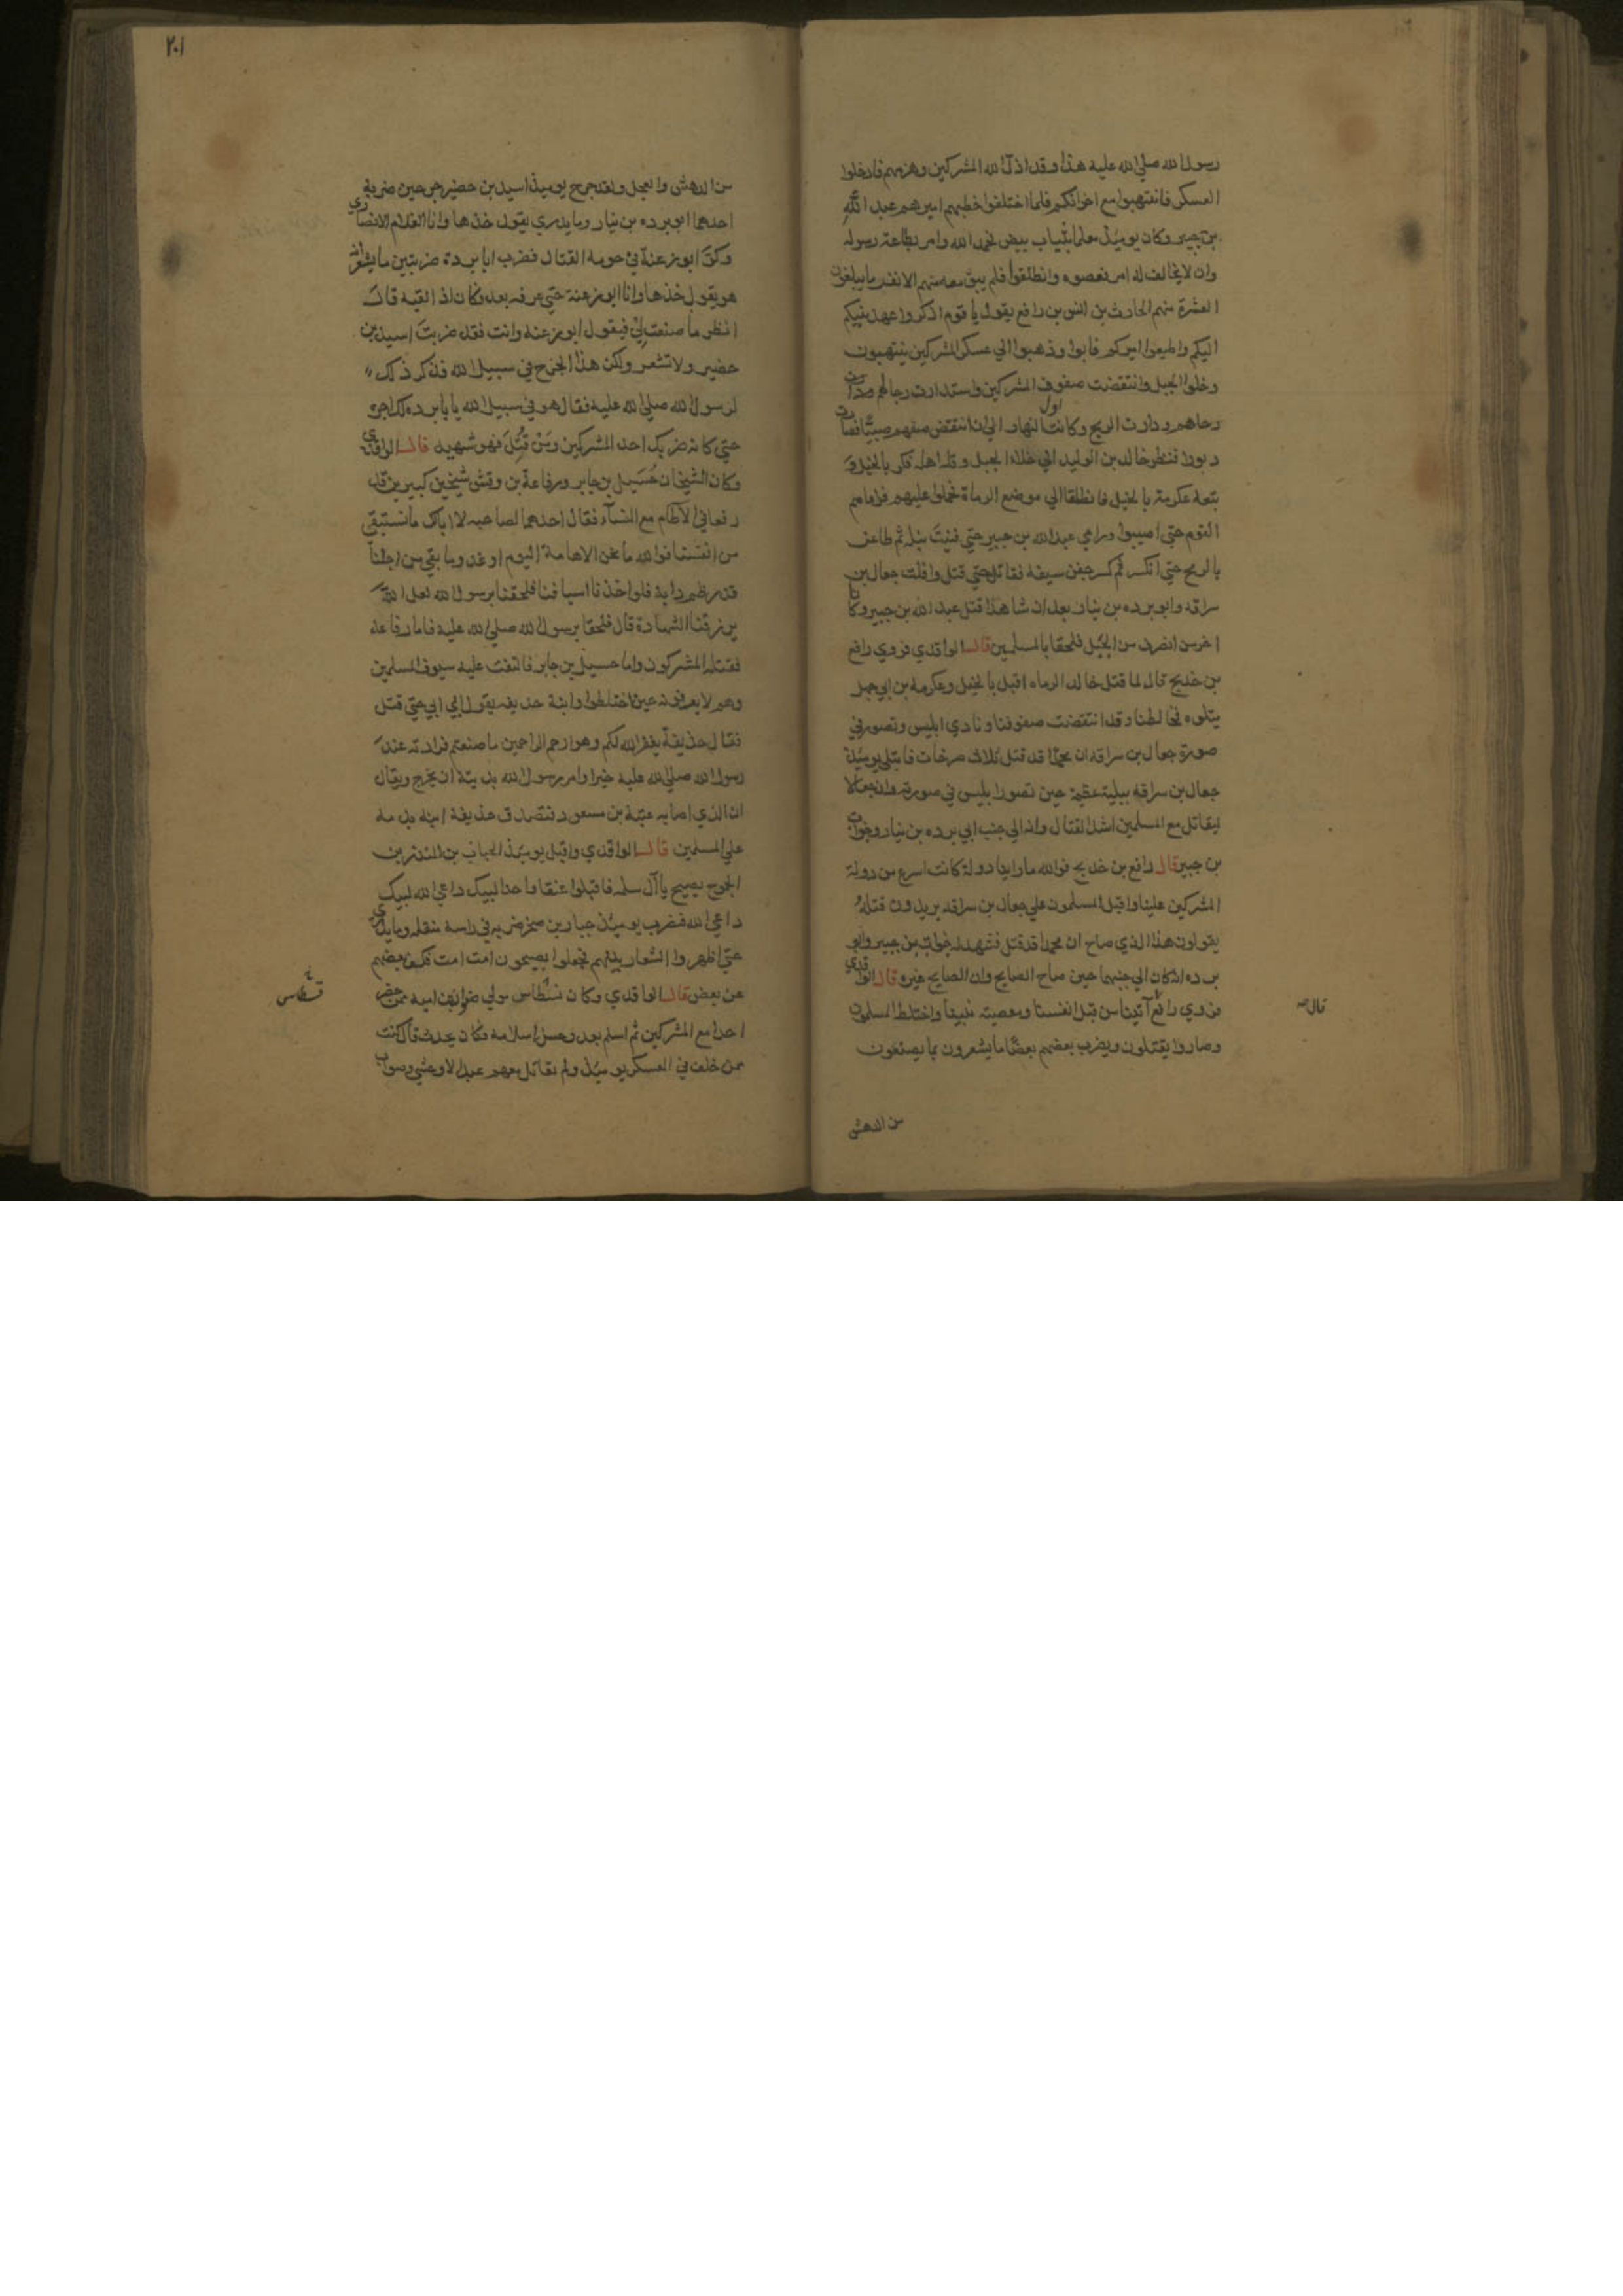 رسول الله صلي الله عليه هذا وقد اذل الله المشركين وهزمهم فادخلوا
العسكر فانتهبوا مع اخوانكم فلما اختلفوا خطبهم اميرهم عبد الله
بن جبير وكان يومئذ معلما بثياب بيض فحمد الله وامر بطاعة رسوله
وان لا يخالف له امر فعصوه وانطلقوا فلم يبق معه منهم الا نفر ما يبلغون
العشرة منهم الحارث بن انس بن رافع يقول يا قوم اذكروا عهد نبيكم
اليكم واطيعوا اميركم فابوا وذهبوا الي عسكر المشركين ينتهبون
وخلوا الجبل وانتقضت صفوف المشركين واستدارت رجالهم
رحاهم ودارت الريح وكانت اول النهار الي ان انتقض صفهم صبا فصارت
دبورا فنظر خالد بن الوليد الي خلاء الجبل وقلة اهله فكر بالخيل و
تبعه عكرمة بالخيل فانطلقا الي موضع الرماة فحملوا عليهم فراماهم
القوم حتي اصيبوا ورامي عبد الله بن جبير حتي فنيت نبله ثم طاعن
بالرمح حتي انكسر ثم كسر جفن سيفه فقاتل حتي قتل وافلت جعال بن
سراقه وابو برده بن نيار بعد ان شاهدا قتل عبد الله بن جبير وكانا
اخر من انصرف من الجبل فلحقا بالمسلمين قال الواقدي فروي رافع
بن خديج قال لما قتل خالد الرماه اقبل بالخيل وعكرمة بن ابي جهل
يتلوه فخالطنا وقد انتقضت صفوفنا ونادي ابليس وتصور في
صورة جعال بن سراقه ان محمدا قد قتل ثلاث صرخات فابتلي يومئذ
جعال بن سراقه ببلية عظيمة حين تصور ابليس في صورته وان جعالا
ليقاتل مع المسلمين اشد القتال وانه الي جنب ابي برده بن نيار وخوات
بن جبير قال رافع بن خديج فوالله ما راينا دولة كانت اسرع من دولة
المشركين علينا واقبل المسلمون علي جعال بن سراقه يريدون قتله
يقولون هذا الذي صاح ان محمدا قد قتل فشهد له خوات بن جبير وابو
برده انه كان الي جنبهما حين صاح الصايح وان الصايح غيره قال الواقدي
فروي رافع اتينا من قبل انفسنا ومعصية نبينا واختلط المسلمون
قال
وصاروا يقتلون ويضرب بعضهم بعضا ما يشعرون بما يصنعون
من الدهش
٢٠١
من الدهش والعجل ولقد جرح يومئذ اسيد بن حضير جرحين ضربه
احدهما ابو برده بن نيار وما يدري يقول خذها وانا الغلام الانصاري
وكر ابو زعنة في حومة القتال فضرب ابا بردة ضربتين ما يشعر انه
هو يقول خذها وانا ابو زعنة حتي عرفه بعد وكان اذا لقيه قال
انظر ما صنعت بي فيقول ابو زعنه وانت فقد ضربت اسيد بن
حضير ولا تشعر ولكن هذا الجرح في سبيل الله فذكر ذلك
لرسول الله صلي الله عليه فقال هو في سبيل الله يا بابرده لك اجره
حتي كانه ضربك احد المشركين ومن قتل فهو شهيد قال الواقدي
وكان الشيخان حسيل بن جابر ورفاعة بن وقش شيخين كبيرين قد
رفعا في الآطام مع النسآء فقال احدهما لصاحبه لا ابا لك ما نستبقي
من انفسنا فوالله ما نحن الا هامة اليوم او غد وما بقي من اجلنا
قدر ظمء دابة فلو اخذنا اسيافنا فلحقنا برسول الله لعل الله
يرزقنا الشهادة قال فلحقا برسول الله صلي الله عليه فاما رفاعة
فقتله المشركون واما حسيل بن جابر فالتفت عليه سيوف المسلمين
وهم لا يعرفونه حين اختلطوا وابنه حذيفه يقول ابي ابي حتي قتل
فقال حذيفة يغفر الله لكم وهو ارحم الراحمين ما صنعتم فزادته عند
رسول الله صلي الله عليه خيرا وامر رسول الله بديته ان تخرج ويقال
ان الذي اصابه عتبة بن مسعود فتصدق حذيفة ابنه بدمه
علي المسلمين قال الواقدي واقبل يومئذ الحباب بن المنذر بن
الجموح يصيح يا آل سلمه فاقبلوا عنقا واحدا لبيك داعي الله لبيك
داعي الله فضرب يومئذ جبار بن صخر ضربه في راسه مثقله وما يدري
حتي اظهروا الشعار بينهم فجعلوا يصيحون امت امت فكف بعضهم
عن بعض قال الواقدي وكان نسطاس مولي ضرار بن اميه ممن حضر
احدا مع المشركين ثم اسلم بعد وحسن اسلامه فكان يحدث قال كنت
ممن خلف في العسكر يومئذ ولم يقاتل معهم عبد الا وحشي وصواب